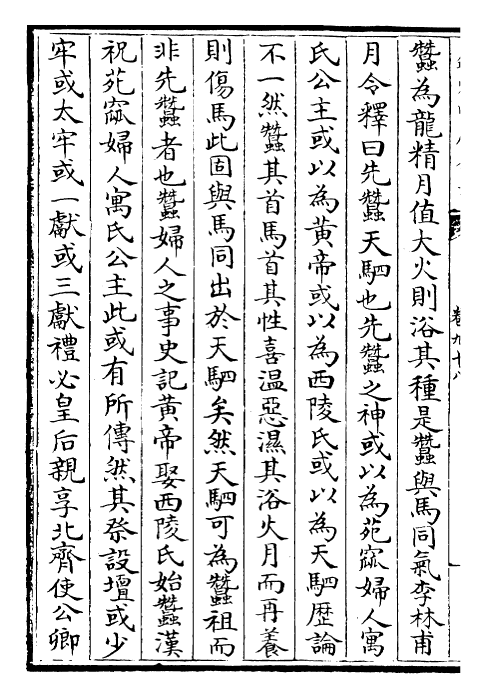 卷九十八
蠶為龍精月值大火則浴其種是蠶與馬同氣李林甫
月令釋曰先蠶天駟也先蠶之神或以為苑窳婦人寓
氏公主或以為黃帝或以為西陵氏或以為天駟歷論
不一然蠶其首馬首其性喜温惡濕其浴火月而再養
則傷馬此固與馬同出於天駟矣然天駟可為蠶祖而
非先蠶者也蠶婦人之事史記黄帝娶西陵氏始蠶漢
祝苑窳婦人寓氏公主此或有所傳然其祭設壇或少
牢或太牢或一獻或三獻禮必皇后親享北齊使公卿